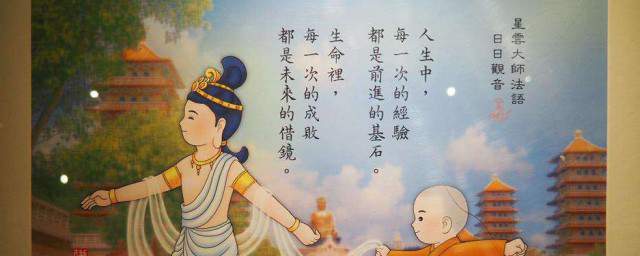 星雲大師法語
日日觀音
人生中，
每一次的經驗
都是前進的基石。
生命裡，
每一次的成敗
都是未來的借鏡。